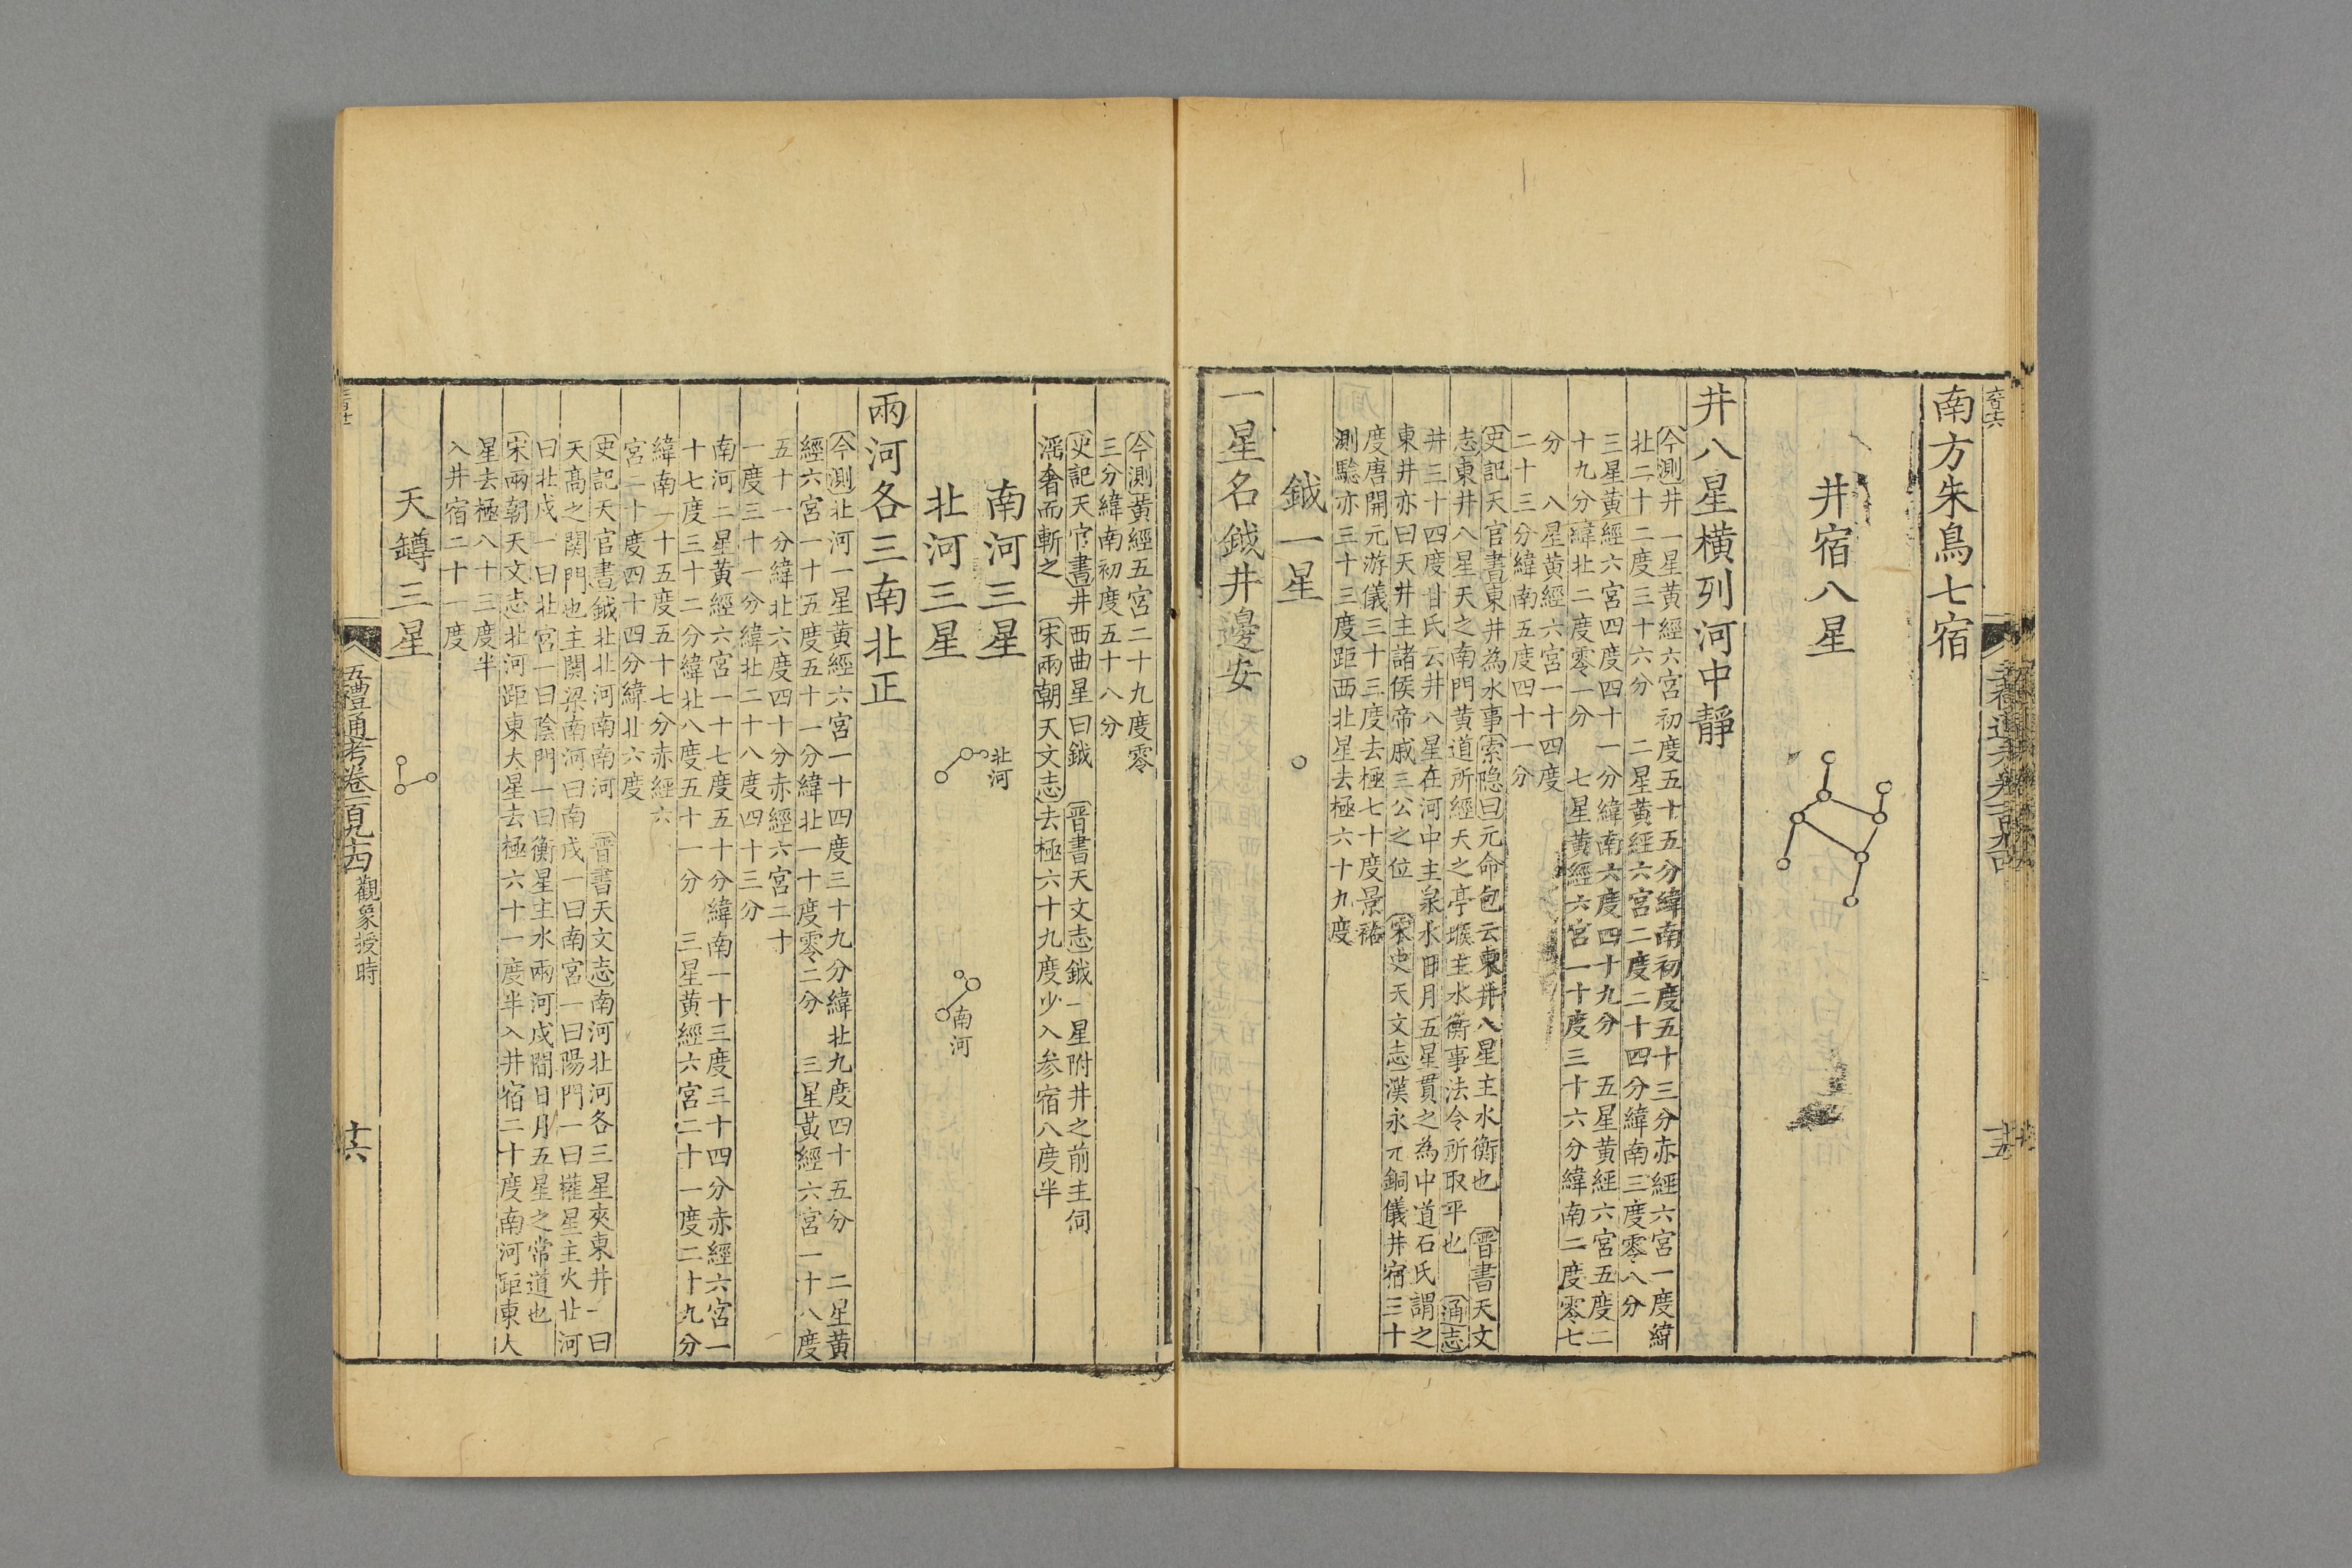 南方朱鳥七宿
井宿八星
井八星橫列河中靜
今測井一星黃經六宮初度五十五分緯南初度五十三分赤經六宮一度緯
北二十二度三十六分　二星黃經六宮二度二十四分緯南三度零八分
三星黃經六宮四度四十一分緯南六度四十九分　五星黃經六宮五度二
十九分緯北二度零一分　七星黃經六宮一十度三十六分緯南二度零七
分　八星黃經六宮一十四度
二十三分緯南五度四十一分
史記天官書東井為水事索隱曰元命包云東井八星主水衡也　晉書天文
志東井八星天之南門黃道所經天之亭堠主水衡事法令所取平也　通志
井三十四度甘氏云井八星在河中主泉水日月五星貫之為中道石氏謂之
東井亦曰天井主諸侯帝戚三公之位　宋史天文志漢永元銅儀井宿三十
度唐開元游儀三十三度去極七十度景祐
測騐亦三十三度距西北星去極六十九度
鉞一星
一星名鉞井邊安
今測黃經五宮二十九度零
三分緯南初度五十八分
史記天官書井西曲星曰鉞　晉書天文志鉞一星附井之前主伺
滛奢而斬之　宋兩朝天文志去極六十九度少入參宿八度半
南河三星
北河三星
北河
南河
兩河各三南北正
今測北河一星黃經六宮一十四度三十九分緯北九度四十五分　二星黃
經六宮一十五度五十一分緯北一十度零二分　三星黃經六宮一十八度
五十一分緯北六度四十分赤經六宮二十
一度三十一分緯北二十八度四十三分
南河二星黃經六宮一十七度五十分緯南一十三度三十四分赤經六宮一
十七度三十二分緯北八度五十一分　三星黃經六宮二十一度二十九分
緯南一十五度五十七分赤經六
宮二十度四十四分緯北六度
史記天官書鉞北北河南南河　晉書天文志南河北河各三星夾東井一曰
天高之關門也主關梁南河曰南戍一曰南宮一曰陽門一曰權星主火北河
曰北戍一曰北宮一曰陰門一曰衡星主水兩河戍間日月五星之常道也
宋兩朝天文志北河距東大星去極六十一度半入井宿二十度南河距東大
星去極八十三度半
入井宿二十一度
天罇三星
五禮通考卷一百九十四　觀象授時
十六